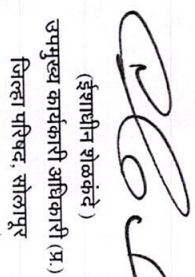 (ईशाधीन शेळकंदे)
उपमुख्य कार्यकारी अधिकारी (प्र.)
जिल्हा परिषद, सोलापूर